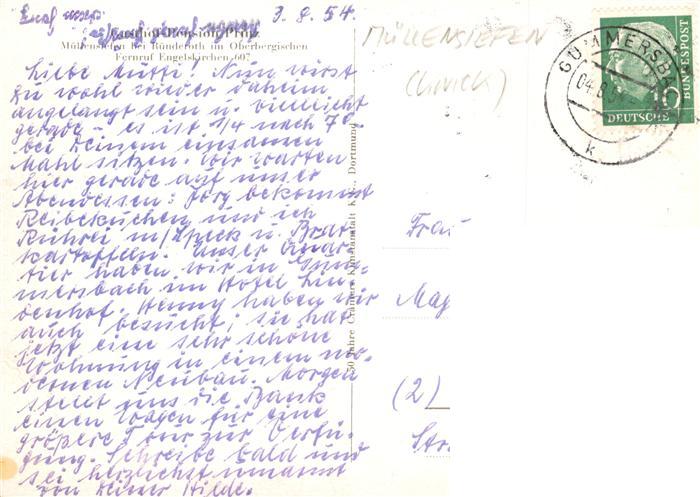 3.8.54.
Gasthof-Pension Prinz
Müllensiefen bei Ründeroth im Oberbergischen
Fernruf Engelskirchen 607
Liebe Mutti! Nun wirst
du wohl wieder daheim
angelangt sein u. vielleicht
gerade - es ist 1/4 nach 7h -
bei deinem einsamen
Mahl sitzen. Wir warten
hier gerade auf unser
Abendessen: Jörg bekommt
Reibekuchen und ich
Rührei m/Speck u. Brat-
kartoffeln. Unser Quar-
tier haben wir in Gum-
mersbach im Hotel Lin-
denhof. Henny haben wir
auch besucht; sie hat
jetzt eine sehr schöne
Wohnung in einem mo-
dernen Neubau. Morgen
stellt uns die Bank
einen Wagen für eine
größere Tour zur Verfü-
gung. Schreibe bald und
sei herzlichst umarmt
von deiner Hilde.
50 Jahre Cramers Kunstanstalt K.G., Dortmund
MÜLLENSIEFEN
GUMMERSBACH
04.8.54
k
DEUTSCHE
BUNDESPOST
Frau
Mag
(2)
Str.